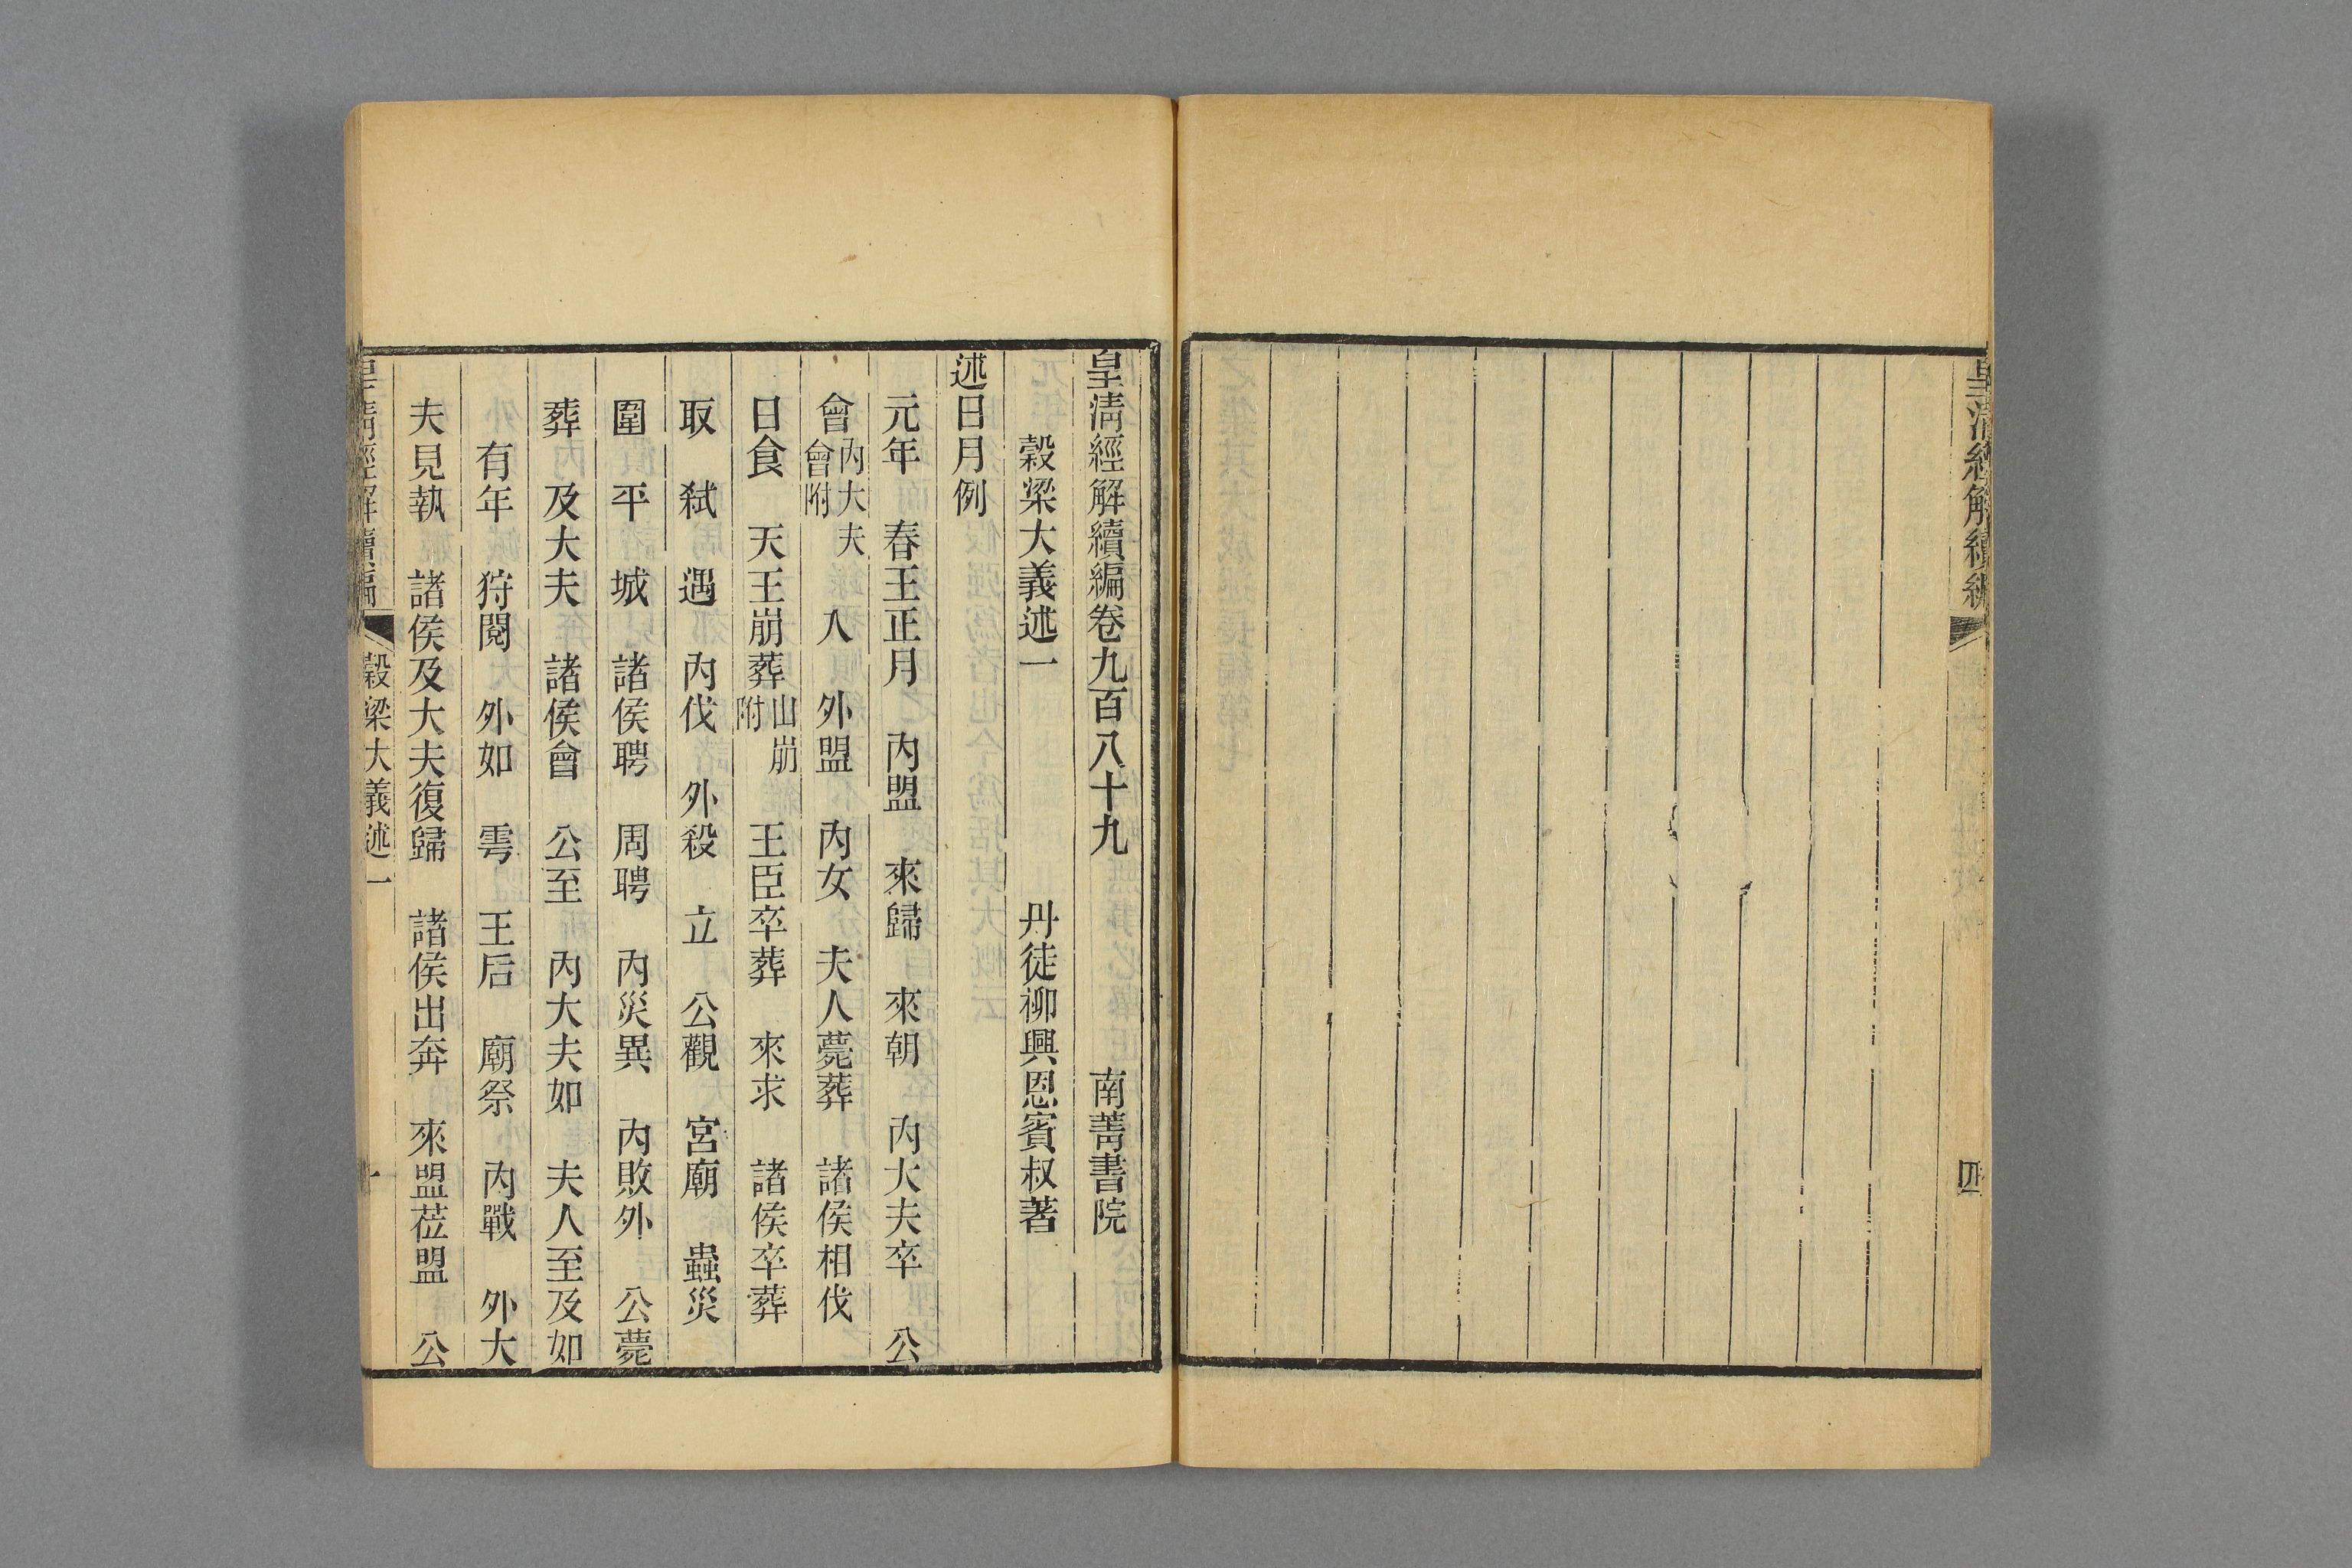 皇清經解續編
四
皇清經解續編卷九百八十九 南菁書院
穀梁大義述一 丹徒柳興恩賓叔著
述日月例
元年 春王正月 內盟 來歸 來朝 內大夫卒 公
會內大夫會附 入 外盟 內女 夫人薨葬 諸侯相伐
日食 天王崩葬山崩附 王臣卒葬 來求 諸侯卒葬
取 弑 遇 內伐 外殺 立 公觀 宮廟 蟲災
圍 平 城 諸侯聘 周聘 內災異 內敗外 公薨
葬 及大夫 諸侯會 公至 內大夫如 夫人至及如
有年 狩閱 外如 雩 王后 廟祭 內戰 外大
夫見執 諸侯及大夫復歸 諸侯出奔 來盟莅盟 公
皇清經解續編 穀梁大義述一 一